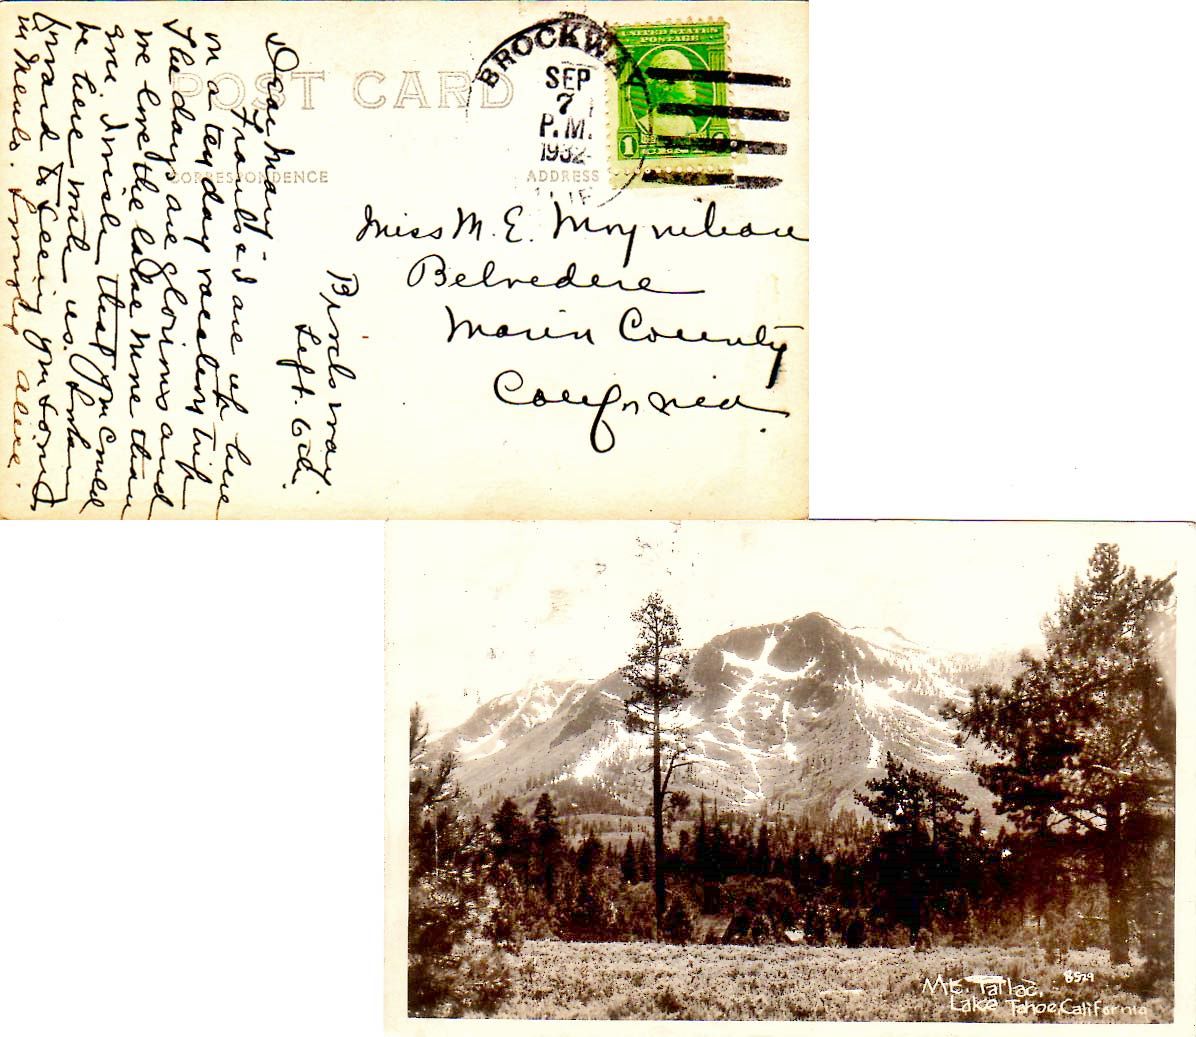 POST CARD
CORRESPONDENCE
ADDRESS
BROCKWAY
SEP
7
P.M.
1932
UNITED STATES
POSTAGE
1
Miss M. E. Moynihan
Belvedere
Marin County
California.
Brockway
Sept. 6th.
Dear Mary-
Frank & I are up here
on a ten day vacation trip
The days are glorious and
we love the lake more than
ever. I wish that you could
be here with us. Looking
forward to seeing you soon
in Alice.
Mt. Tallac, 8529
Lake Tahoe, California